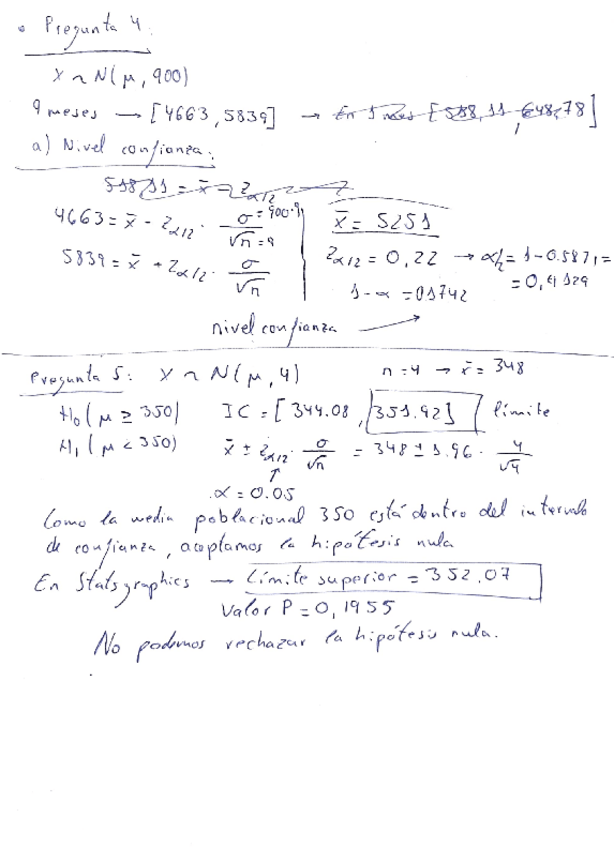 • Pregunta 4:
X ~ N(μ, 900)
9 meses → [4663, 5839] → En 1 mes [518,11, 648,78]
a) Nivel confianza:
518,11 = x̄ - Zα/2
4663 = x̄ - Zα/2 · σ = 900·9 / √n = 9
5839 = x̄ + Zα/2 · σ/√n
x̄ = 5251
Zα/2 = 0,22 → α/2 = 1 - 0.5871 =
= 0,4129
1 - α = 0,1742
nivel confianza →
Pregunta 5: X ~ N(μ, 4) n = 4 → x̄ = 348
H0 (μ ≥ 350) IC = [344.08, 351.92] límite
H1 (μ < 350) x̄ ± Zα/2 · σ/√n = 348 ± 1.96 · 4/√4
α = 0.05
Como la media poblacional 350 está dentro del intervalo
de confianza, aceptamos la hipótesis nula
En Statsgraphics → Límite superior = 352.07
Valor P = 0,1955
No podemos rechazar la hipótesis nula.